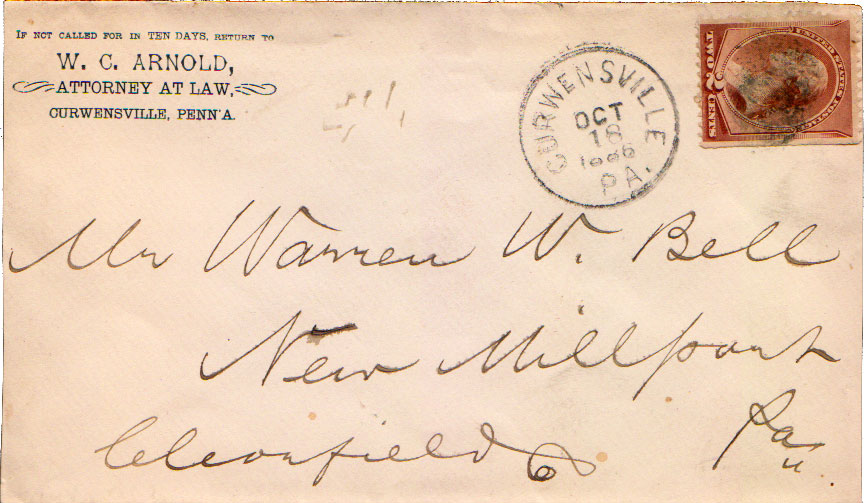 IF NOT CALLED FOR IN TEN DAYS, RETURN TO
W. C. ARNOLD,
ATTORNEY AT LAW,
CURWENSVILLE, PENN'A.
CURWENSVILLE
OCT
16
1886
PA.
UNITED STATES POSTAGE
TWO 2 CENTS
Mr Warren W. Bell
New Millport
Clearfield Co
Pa